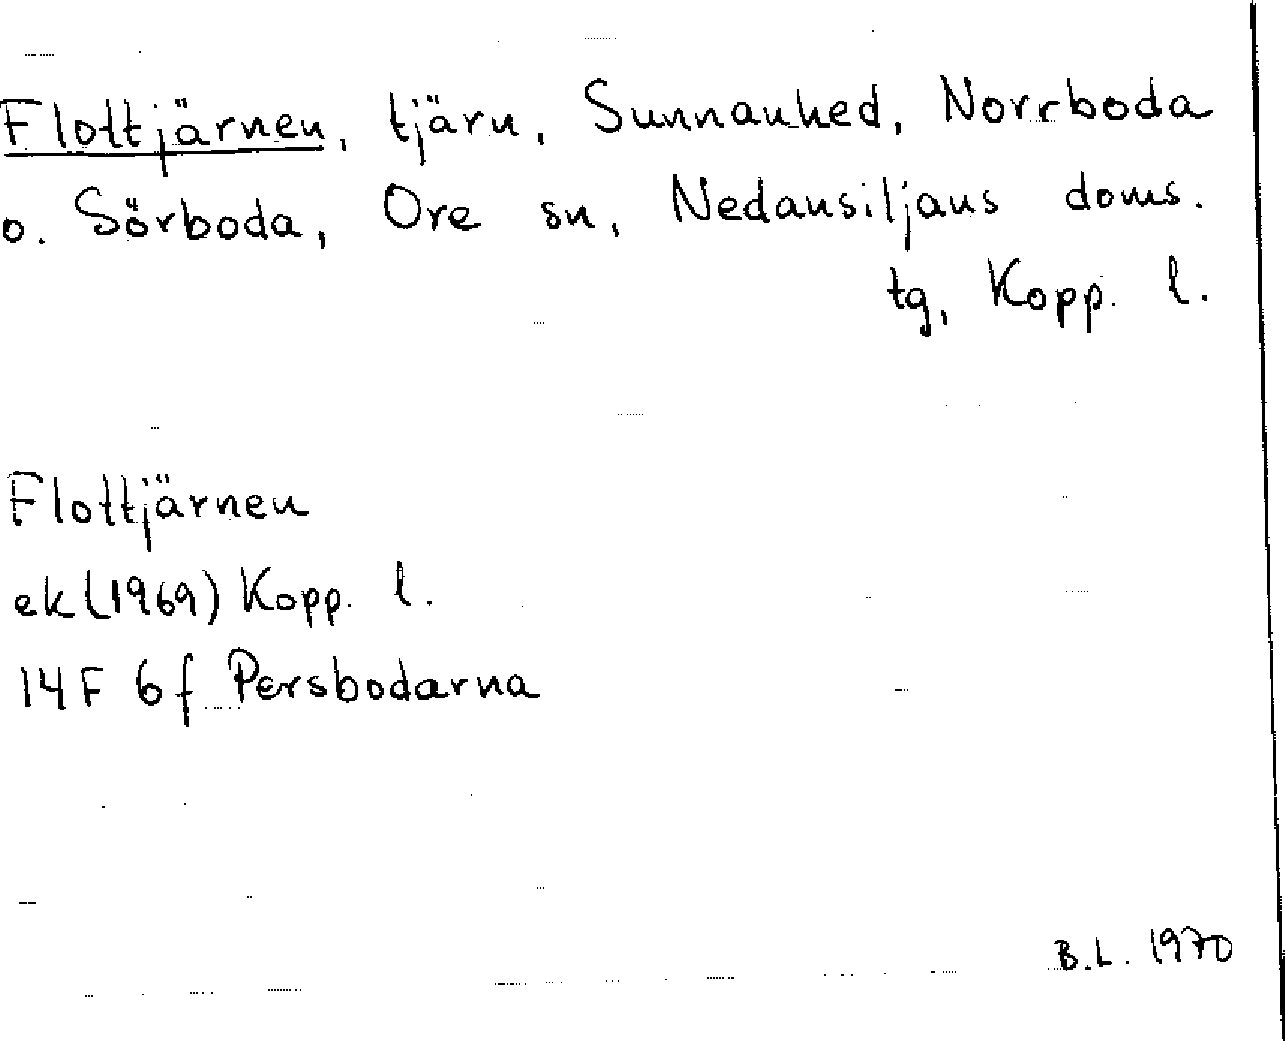 Flottjärnen, tjärn, Sunnanhed, Norrboda
o. Sörboda, Ore sn, Nedansiljans doms.
tg, Kopp. l.
Flottjärnen
ek (1969) Kopp. l.
14F 6f Persbodarna
B.L. 1970